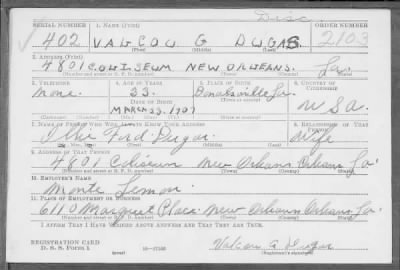 Disc
SERIAL NUMBER 1. NAME (Print) ORDER NUMBER
402 VALCOU G DUGAS 2103
(First) (Middle) (Last)
2. ADDRESS (Print)
4801 COLISEUM NEW ORLEANS. La.
(Number and street or R. F. D. number) (Town) (County) (State)
3. TELEPHONE 4. AGE IN YEARS 5. PLACE OF BIRTH 6. COUNTRY OF CITIZENSHIP
none 33. Donalsonville La.
DATE OF BIRTH (Town or county)
MARCH 23. 1907 U S A.
(Exchange) (No.) (Mo.) (Day) (Yr.) (State or country)
7. NAME OF PERSON WHO WILL ALWAYS KNOW YOUR ADDRESS 8. RELATIONSHIP OF THAT PERSON
Ford Dugas Wife
(Mr., Mrs., Miss) (First) (Middle) (Last)
9. ADDRESS OF THAT PERSON
4801 Coliseum New Orleans Orleans La.
(Number and street or R. F. D. number) (Town) (County) (State)
10. EMPLOYER'S NAME
Monte Lemon
11. PLACE OF EMPLOYMENT OR BUSINESS
6110 Marquet Place New Orleans Orleans La.
(Number and street or R. F. D. number) (Town) (County) (State)
I AFFIRM THAT I HAVE VERIFIED ABOVE ANSWERS AND THAT THEY ARE TRUE.
REGISTRATION CARD
D. S. S. Form 1 (over) 16-17105 Valcou G Dugas
(Registrant's signature)